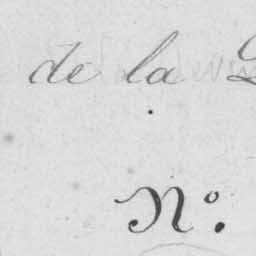 de la
Nº.